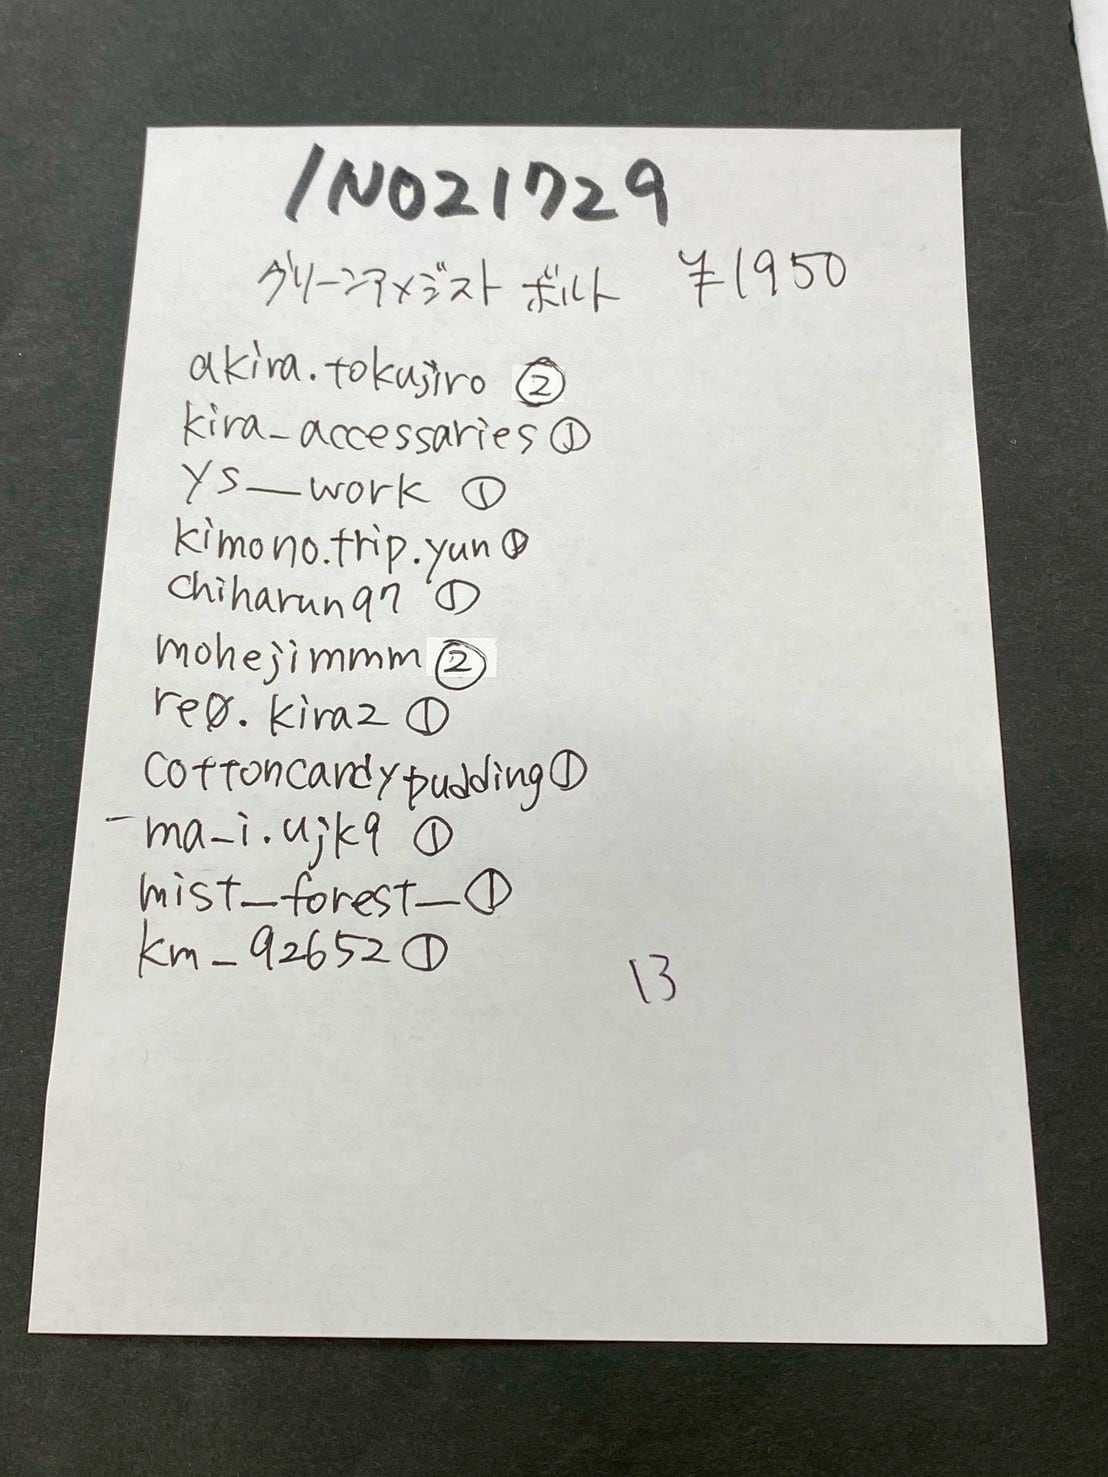 INO21729
グリーンアメジスト ボルト ¥1950
akira.tokujiro ②
kira_accessaries ①
ys__work ①
kimono.trip.yun ①
chiharun97 ①
mohejimmm ②
reø.kira2 ①
cottoncandypudding ①
-ma_i.ujk9 ①
mist_forest_ ①
km_92652 ①
13